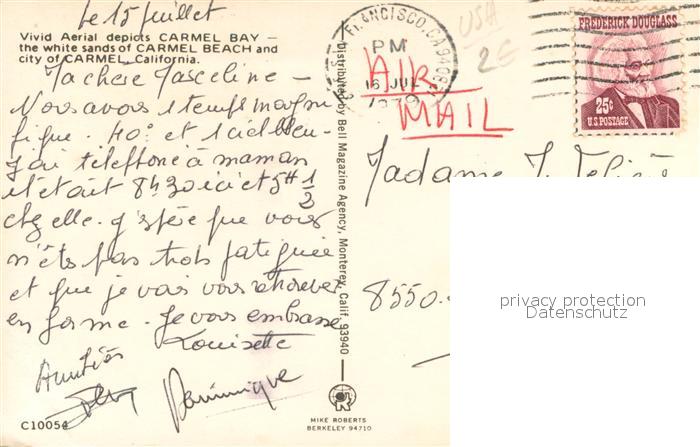 Le 15 juillet
Vivid Aerial depicts CARMEL BAY —
the white sands of CARMEL BEACH and
city of CARMEL, California.
Ma chère Josceline —
Nous avons 1 temps magni
fique. 40° et 1 ciel bleu-
J'ai téléphoné à maman
il était 8h30 ici et 5H 1/2
chez elle. J'espère que vous
n'êts pas trop fatiguée
et que je vais vous retrouver
en forme. Je vous embrasse
Louisette
Amitiés
Dominique
C10054
Distributed by Bell Magazine Agency, Monterey, Calif 93940 —
MIKE ROBERTS
BERKELEY 94710
FRANCISCO, CA 940
PM
16 JUL
1979
USA
2€
AIR
MAIL
FREDERICK DOUGLASS
25¢
U.S. POSTAGE
Madame J.
8550
privacy protection
Datenschutz